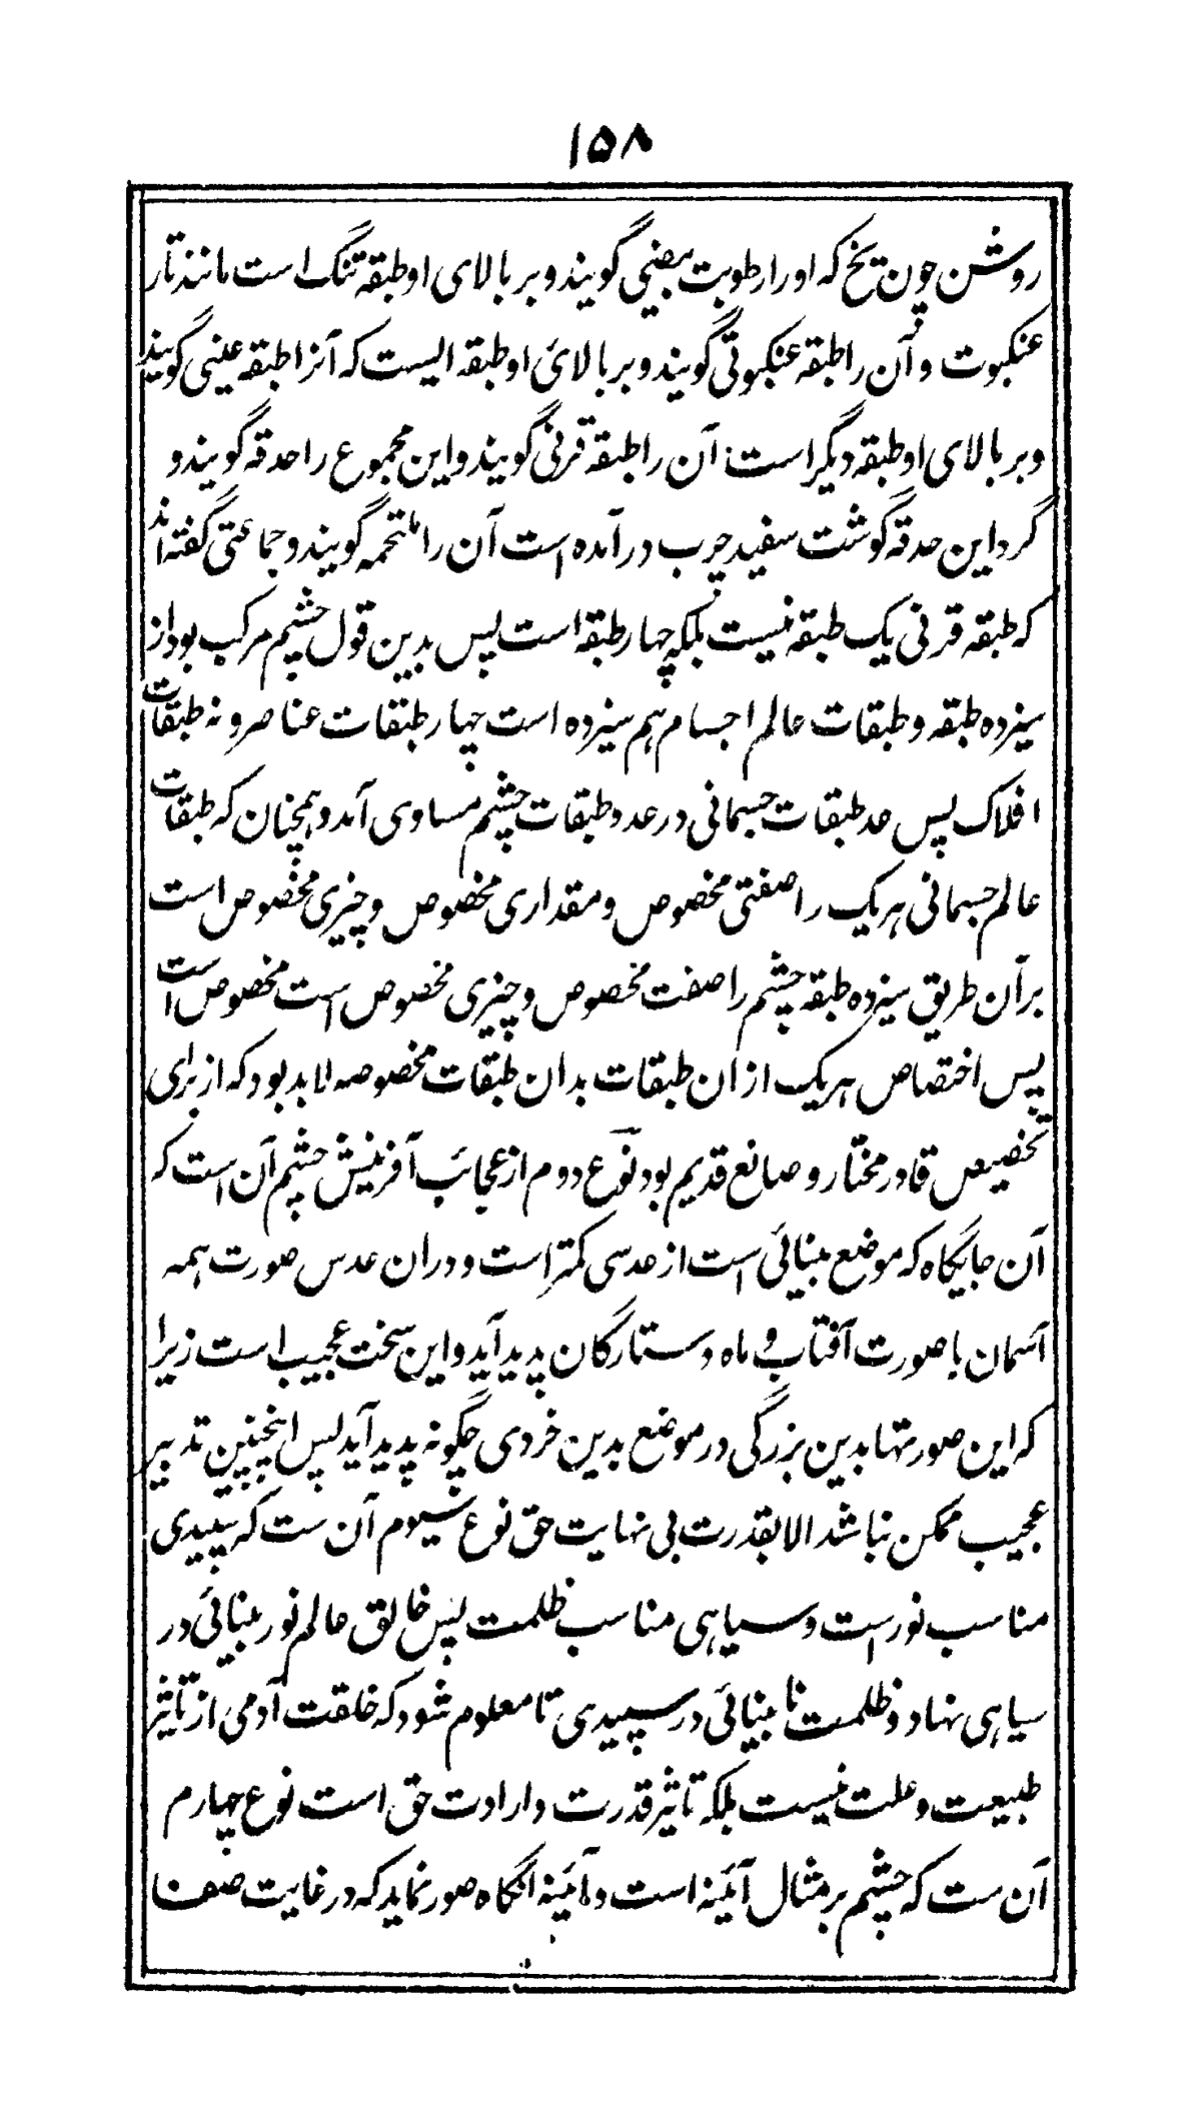 ۱۵۸
روشن چون یخ که او را رطوبت بیضی گویند و بر بالای او طبقه تنگ است مانند تار
عنکبوت و آن را طبقه عنکبوتی گویند و بر بالائ او طبقه ایست که آنرا طبقه عینی گویند
و بر بالای او طبقه دیگر است آن را طبقه قرنی گویند و این مجموع را حدقه گویند و
گرد این حدقه گوشت سفید چرب در آمده است آن را ملتحمه گویند و جماعتی گفته اند
که طبقه قرنی یک طبقه نیست بلکه چهار طبقه است پس بدین قول چشم مرکب بود از
سیزده طبقه و طبقات عالم اجسام هم سیزده است چهار طبقات عناصر و نه طبقات
افلاک پس عدد طبقات جسمانی در عدد طبقات چشم مساوی آمد و همچنان که طبقات
عالم جسمانی هر یک را صفتی مخصوص و مقداری مخصوص و چیزی مخصوص است
بر آن طریق سیزده طبقه چشم را صفت مخصوص و چیزی مخصوص است مخصوص است
پس اختصاص هر یک از ان طبقات بدان طبقات مخصوصه لابد بود که از برای
تخصیص قادر مختار و صانع قدیم بود نوع دوم از عجائب آفرینش چشم آن است که
آن جایگاه که موضع بینائی است از عدسی کمتر است و دران عدس صورت همه
آسمان با صورت آفتاب و ماه و ستارگان پدید آید و این سخت عجیب است زیرا
که این صورتها بدین بزرگی در موضع بدین خردی چگونه پدید آید پس اینچنین تدبیر
عجیب ممکن نباشد الا بقدرت بی نهایت حق نوع سیوم آن ست که سپیدی
مناسب نور است و سیاهی مناسب ظلمت پس خالق عالم نور بینائی در
سیاهی نهاد و ظلمت نا بینائی در سپیدی تا معلوم شود که خلقت آدمی از تاثیر
طبیعت و علت نیست بلکه تاثیر قدرت و ارادت حق است نوع چهارم
آن ست که چشم بر مثال آئینه است و آئینه انگاه صور نماید که در غایت صفا